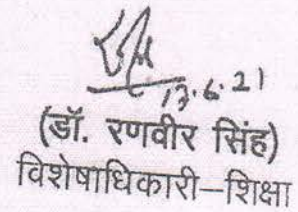 17.6.21
(डॉ. रणवीर सिंह)
विशेषाधिकारी–शिक्षा